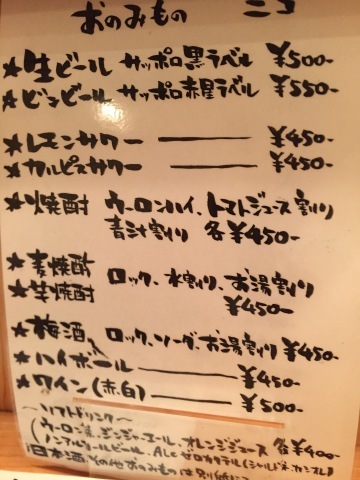 おのみもの ニコ
★生ビール サッポロ黒ラベル ¥500-
★ビンビール サッポロ赤星ラベル ¥550-
★レモンサワー ――― ¥450-
★カルピスサワー ――― ¥450-
★焼酎 ウーロンハイ、トマトジュース割り
青汁割り 各¥450-
★麦焼酎
★芋焼酎 ロック、水割り、お湯割り
¥450-
★梅酒、ロック、ソーダ、お湯割り ¥450-
★ハイボール ――― ¥450-
★ワイン(赤・白) ――― ¥500-
〜ソフトドリンク〜
(ウーロン茶、ジンジャーエール、オレンジジュース 各¥400-
ノンアルコールビール、ALCゼロカクテル(シャルドネ・カシオレ)
日本酒、その他おのみものは別紙にて